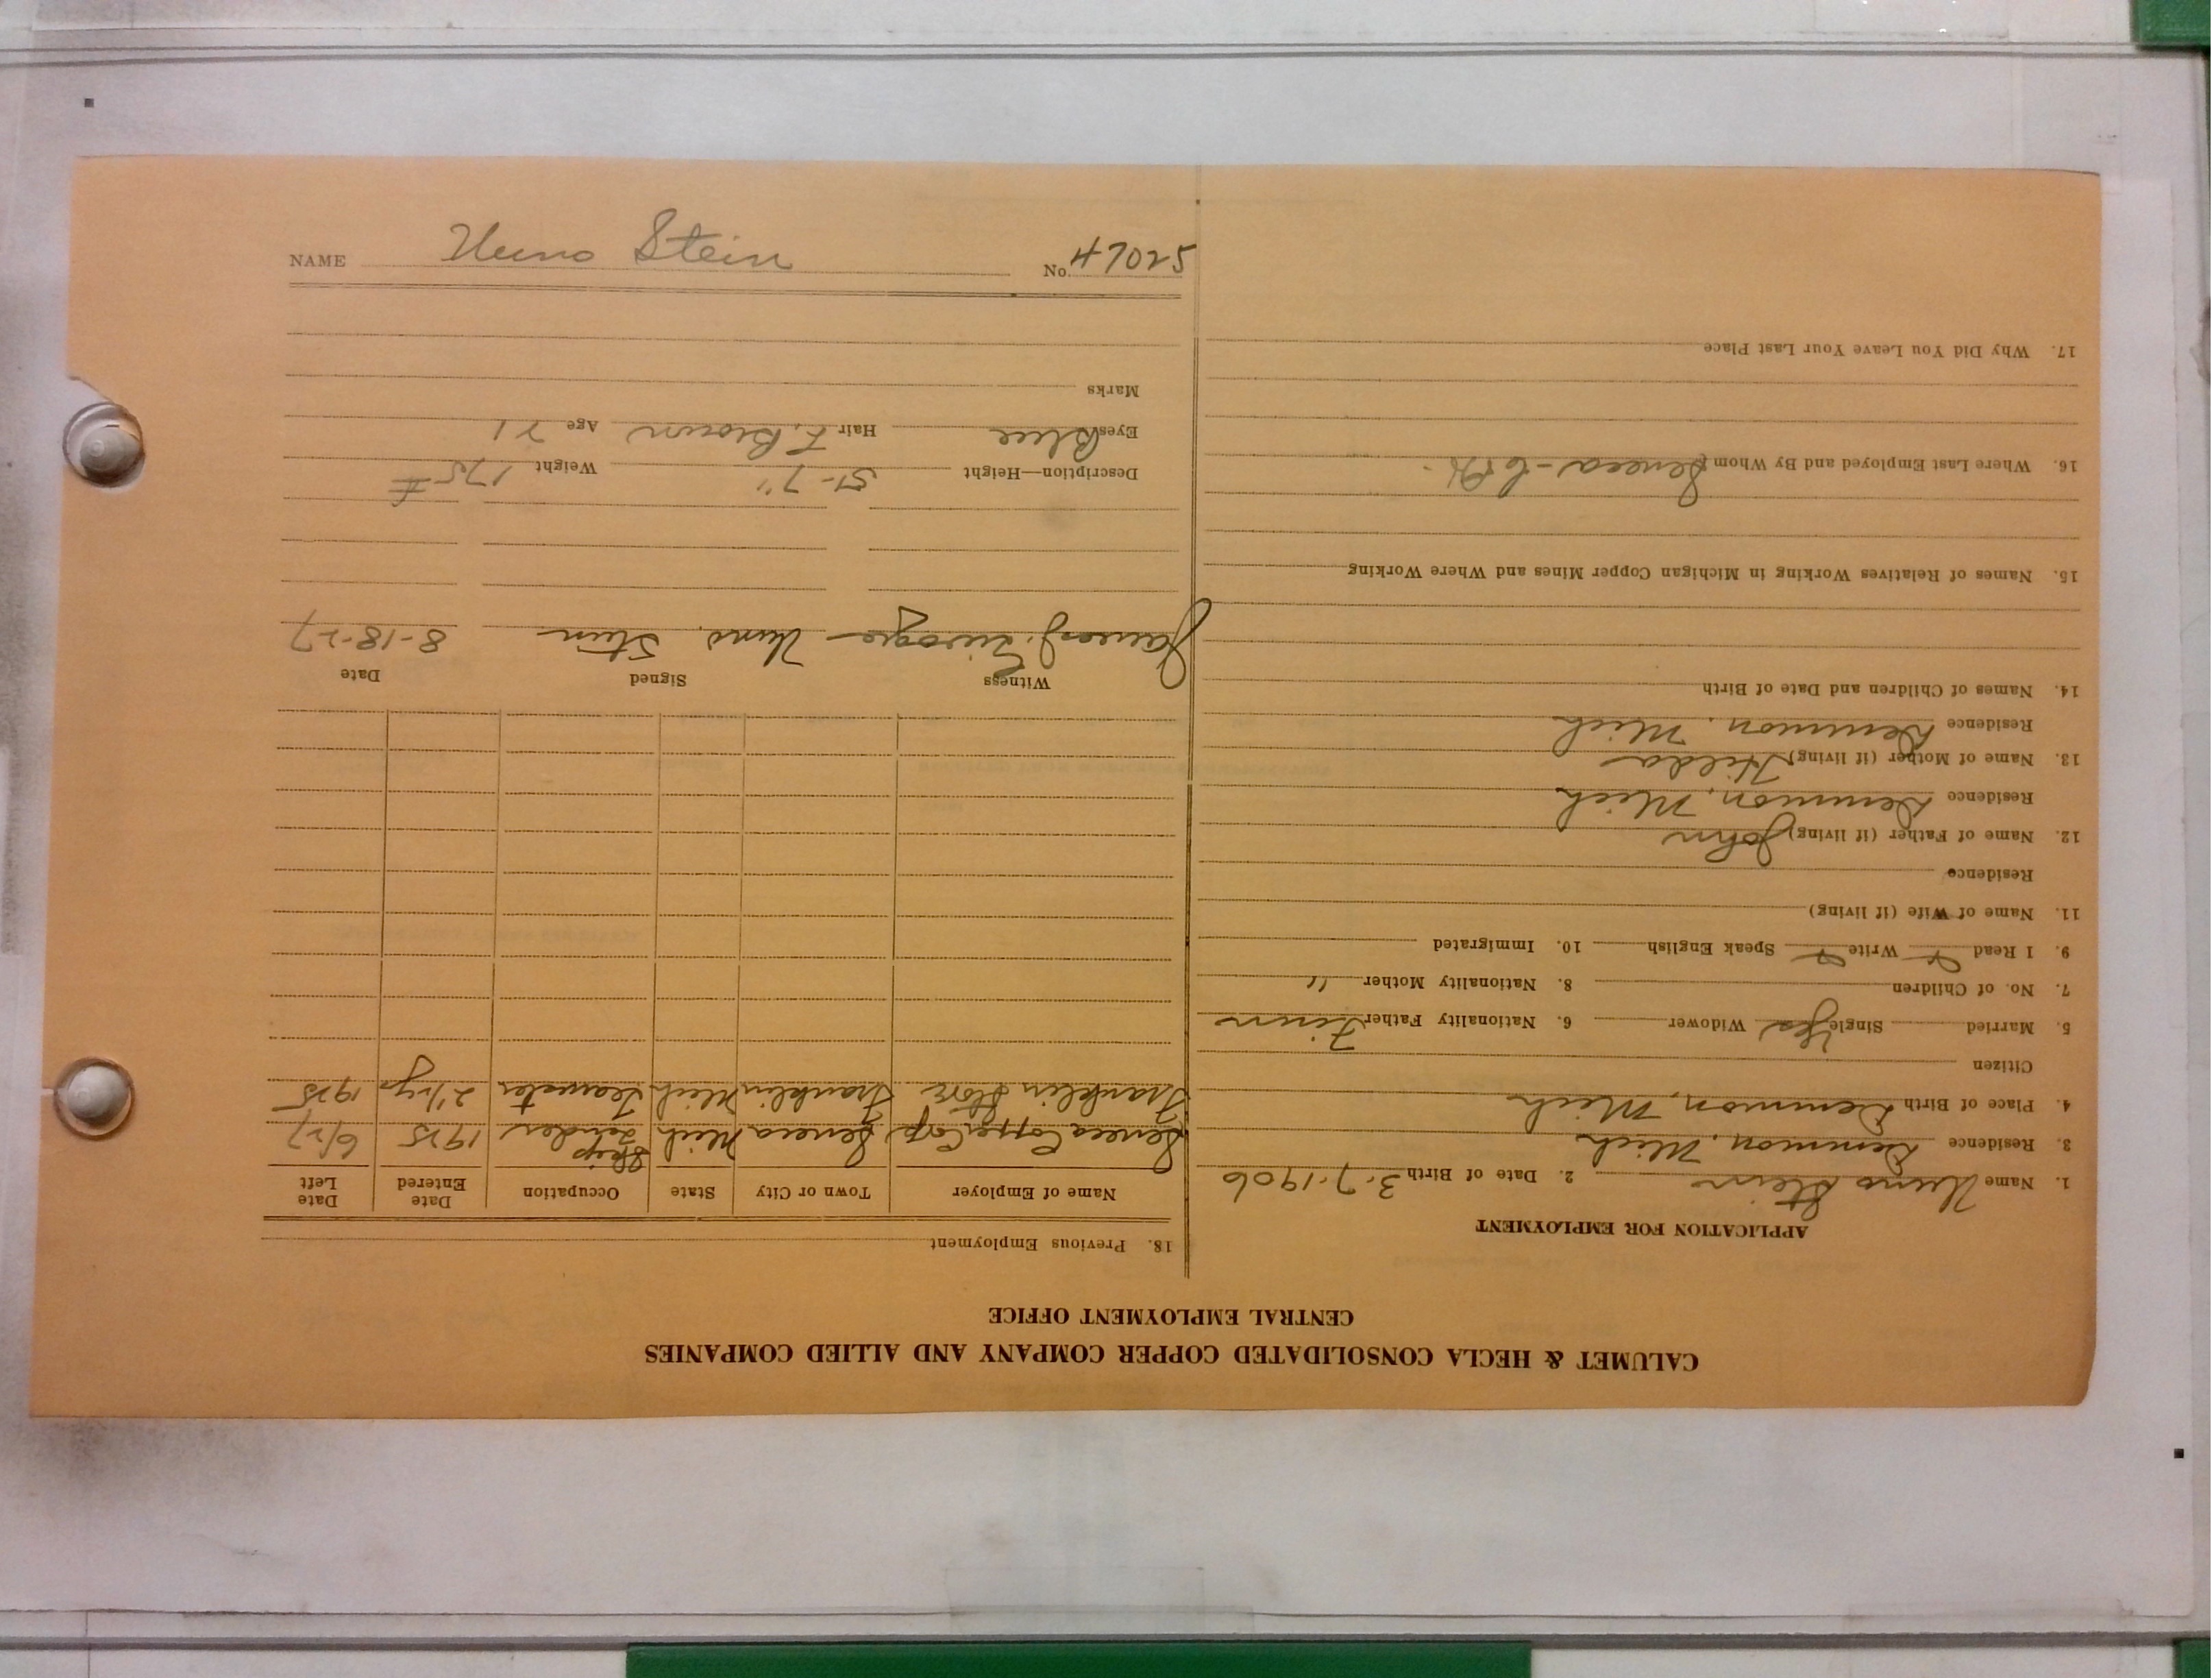 CALUMET & HECLA CONSOLIDATED COPPER COMPANY AND ALLIED COMPANIES
CENTRAL EMPLOYMENT OFFICE
APPLICATION FOR EMPLOYMENT
1. Name Uuno Stein 2. Date of Birth 3-7-1906
3. Residence Demmon, Mich
4. Place of Birth Demmon, Mich
Citizen
5. Married Single Yes Widower 6. Nationality Father Finn
7. No. of Children 8. Nationality Mother "
9. I Read Write Speak English 10. Immigrated
11. Name of Wife (if living)
Residence
12. Name of Father (if living) John
Residence Demmon, Mich
13. Name of Mother (if living) Hilda
Residence Demmon, Mich
14. Names of Children and Date of Birth
15. Names of Relatives Working in Michigan Copper Mines and Where Working
16. Where Last Employed and By Whom Seneca
17. Why Did You Leave Your Last Place
18. Previous Employment
Name of Employer Town or City State Occupation Date Entered Date Left
Seneca Copper Corp Seneca Mich Skip Lander 1925 6/27
Franklin Store Franklin Mich Teamster 2 1/2 yrs 1925
Witness Signed Date
James J. Uuno Stein 8-18-27
Description—Height 5'-7" Weight 175 #
Eyes Blue Hair L. Brown Age 21
Marks
NAME Uuno Stein No. 47025